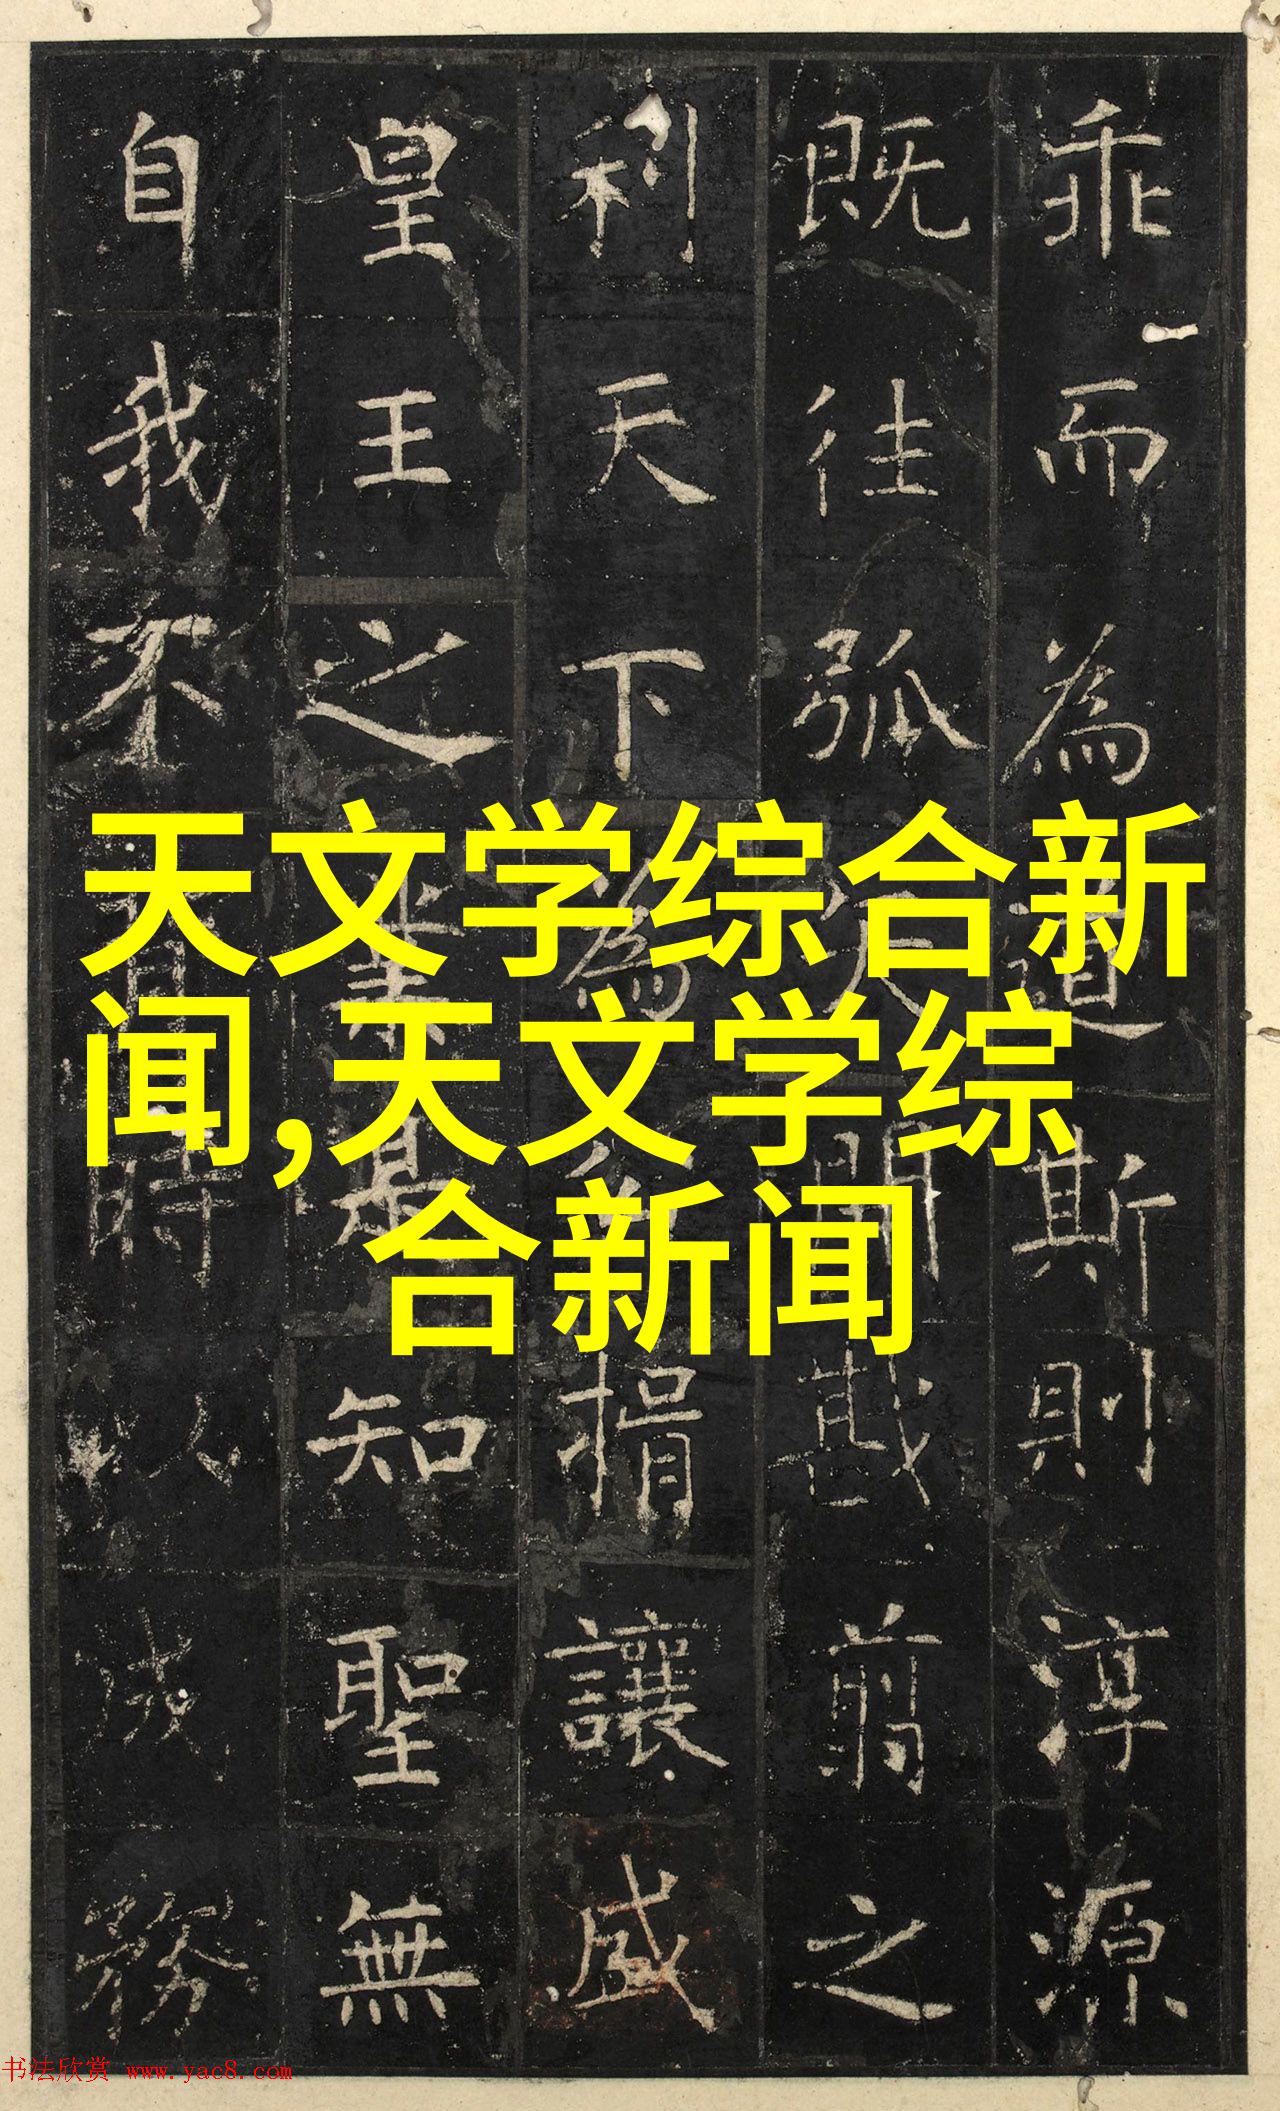 乖而為道斯則淳源
既往弧
之
利天下為
捐讓威
皇王之業是知聖無
自我不
時
務
天文学综合新
闻,天文学综
合新闻
书法欣赏 www.yac8.com